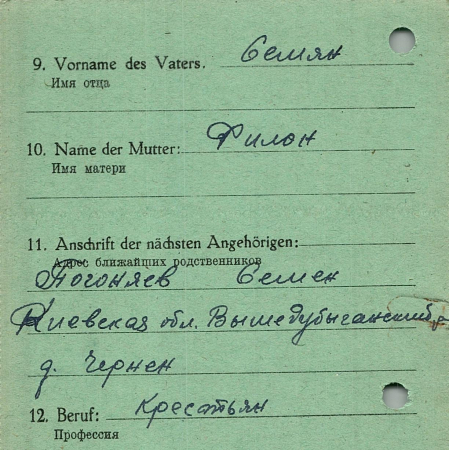 9. Vorname des Vaters. Семян
Имя отца
10. Name der Mutter: Филон
Имя матери
11. Anschrift der nächsten Angehörigen:
Адрес ближайших родственников
Погоняев Семен
Киевская обл. Вышедубычанский
д. Чернен
12. Beruf: Крестьян
Профессия